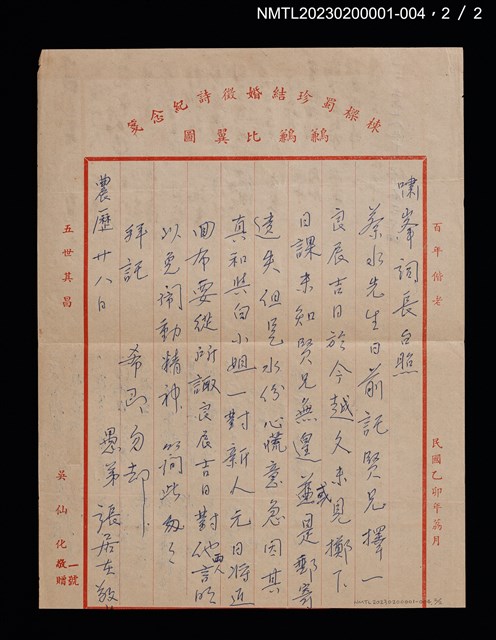 NMTL20230200001-004，2／2
棟樑蜀珍結婚徵詩紀念箋
鶼鶼比翼圖
百年偕老
民國乙卯年荔月
嘯峯詞長台照
蔡水先生日前託賢兄擇一
良辰吉日於今越久未見擲下
日課未知賢兄無遑或是郵寄
遺失但見水份心慌意急因其
真和與白小姐一對新人元日將近
回布要從所諏良辰吉日對他言明
以免鬧動精神 此
拜託 希 勿却
愚弟 張居
農歷廿八日
五世其昌
吳仙化敬贈
一號
NMTL20230200001-004, 2/2